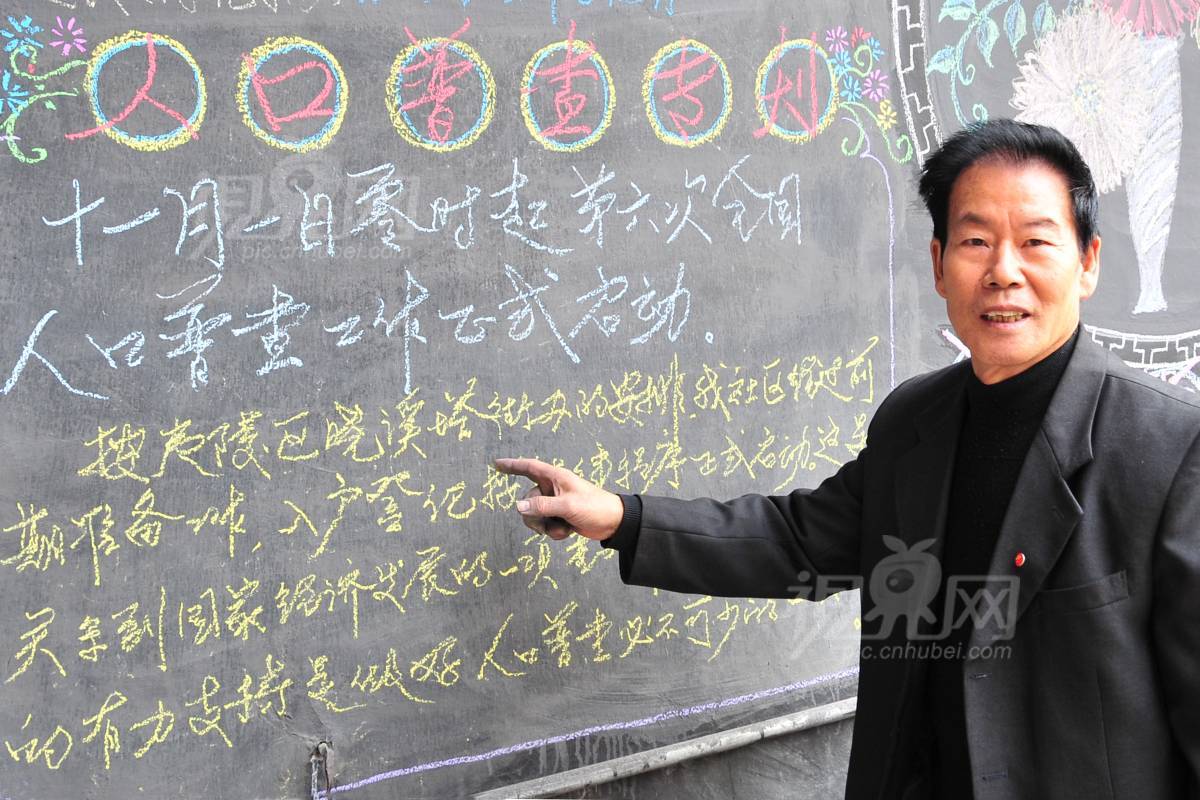 人口普查专刊
十一月一日零时起第六次全国
人口普查工作正式启动。
按夷陵区晓溪塔街办的安排,我社区经过前
期准备工作,入户登记按程序正式启动。这是
关系到国家经济发展的一项
的有力支持是做好人口普查必不可少的
视界网
pic.cnhubei.com
视界网
pic.cnhubei.com